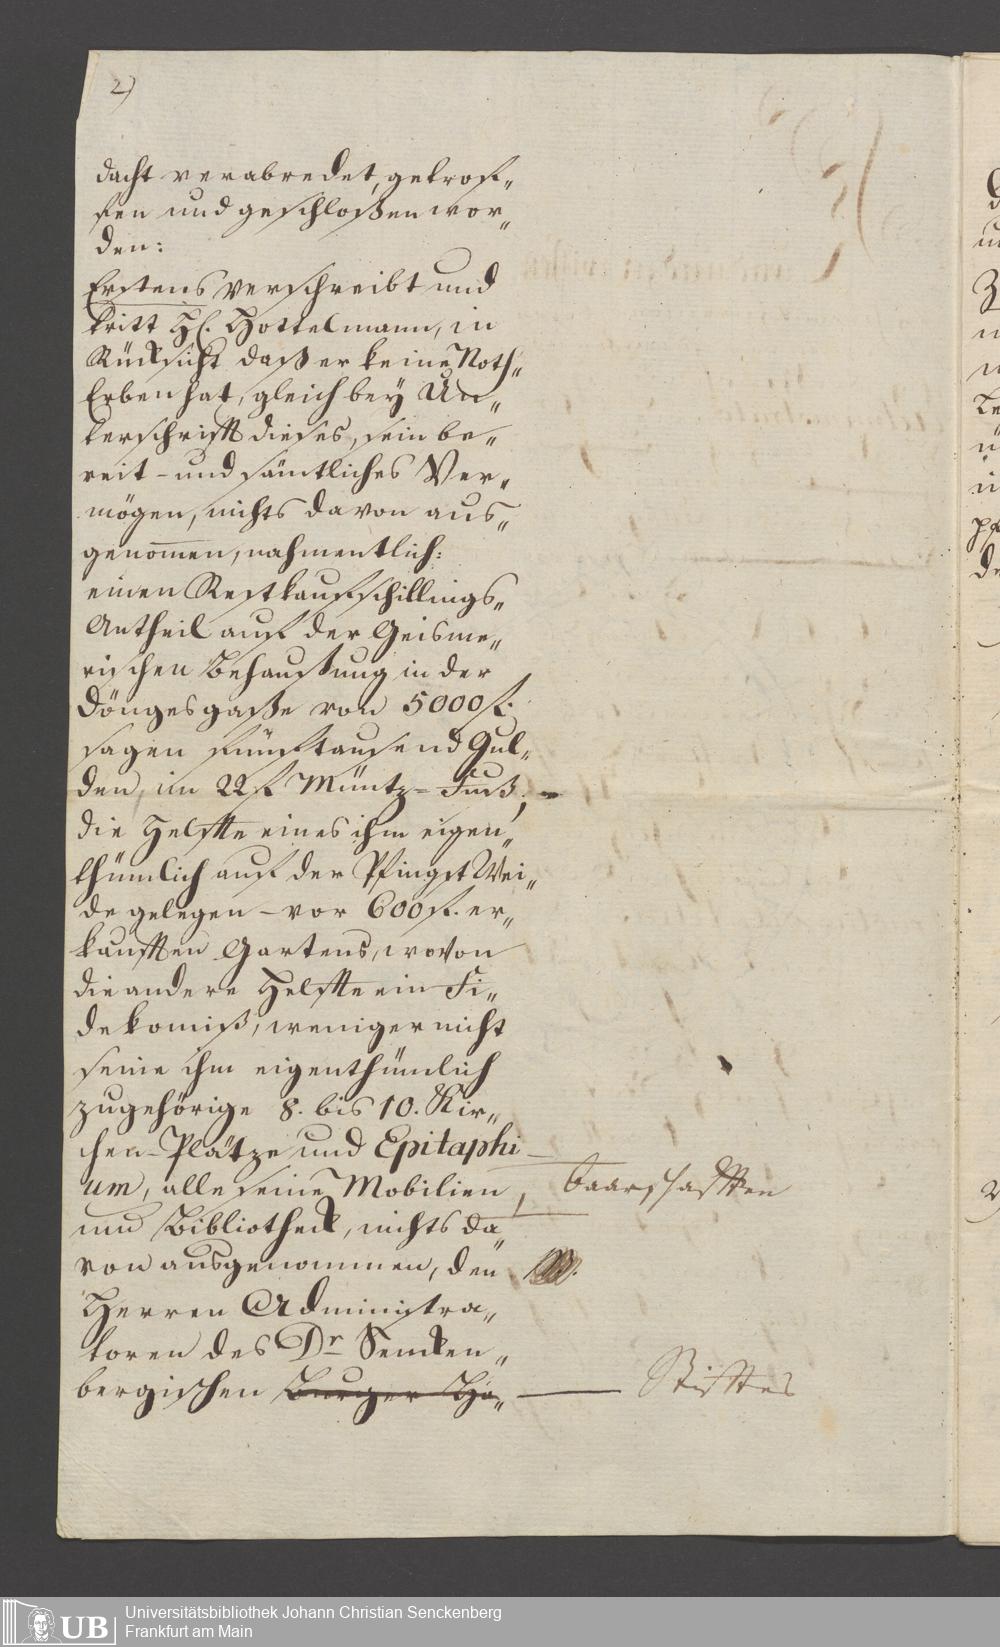 2)
dacht verabredet, getrof„
fen und geschloßen wor„
den:
Erstens verschreibt und
tritt H. Hottelmann, in
Rücksicht daß er keine Noth„
Erben hat, gleich bey Un„
terschrifft dieses, sein be„
reit- und sämtliches Ver„
mögen, nichts davon aus„
genom̅en, nahmentlich:
einen Restkaufschillings„
Antheil auf der Geisme„
rischen Behaußung in der
Döngesgaße von 5000 f.
sagen fünftausend Gul„
den, im 22 f Müntz=Fuß;
die Helffte eines ihm eigen„
thümlich auf der PfingstWei„
de gelegen - vor 600 f. er„
kaufften Gartens, wovon
die andere Helffte ein Fi„
dekomiß, weniger nicht
seine ihm eigenthümlich
zugehörige 8. bis 10. Kir„
chen-Plätze und Epitaphi
um, alle seine Mobilien, baarschafften
und Bibliotheck, nichts da„
von ausgenommen, den
Herren Administra„
toren des Dr Sencken„
bergischen Burger Ho„ — Stifftes
UB
Universitätsbibliothek Johann Christian Senckenberg
Frankfurt am Main